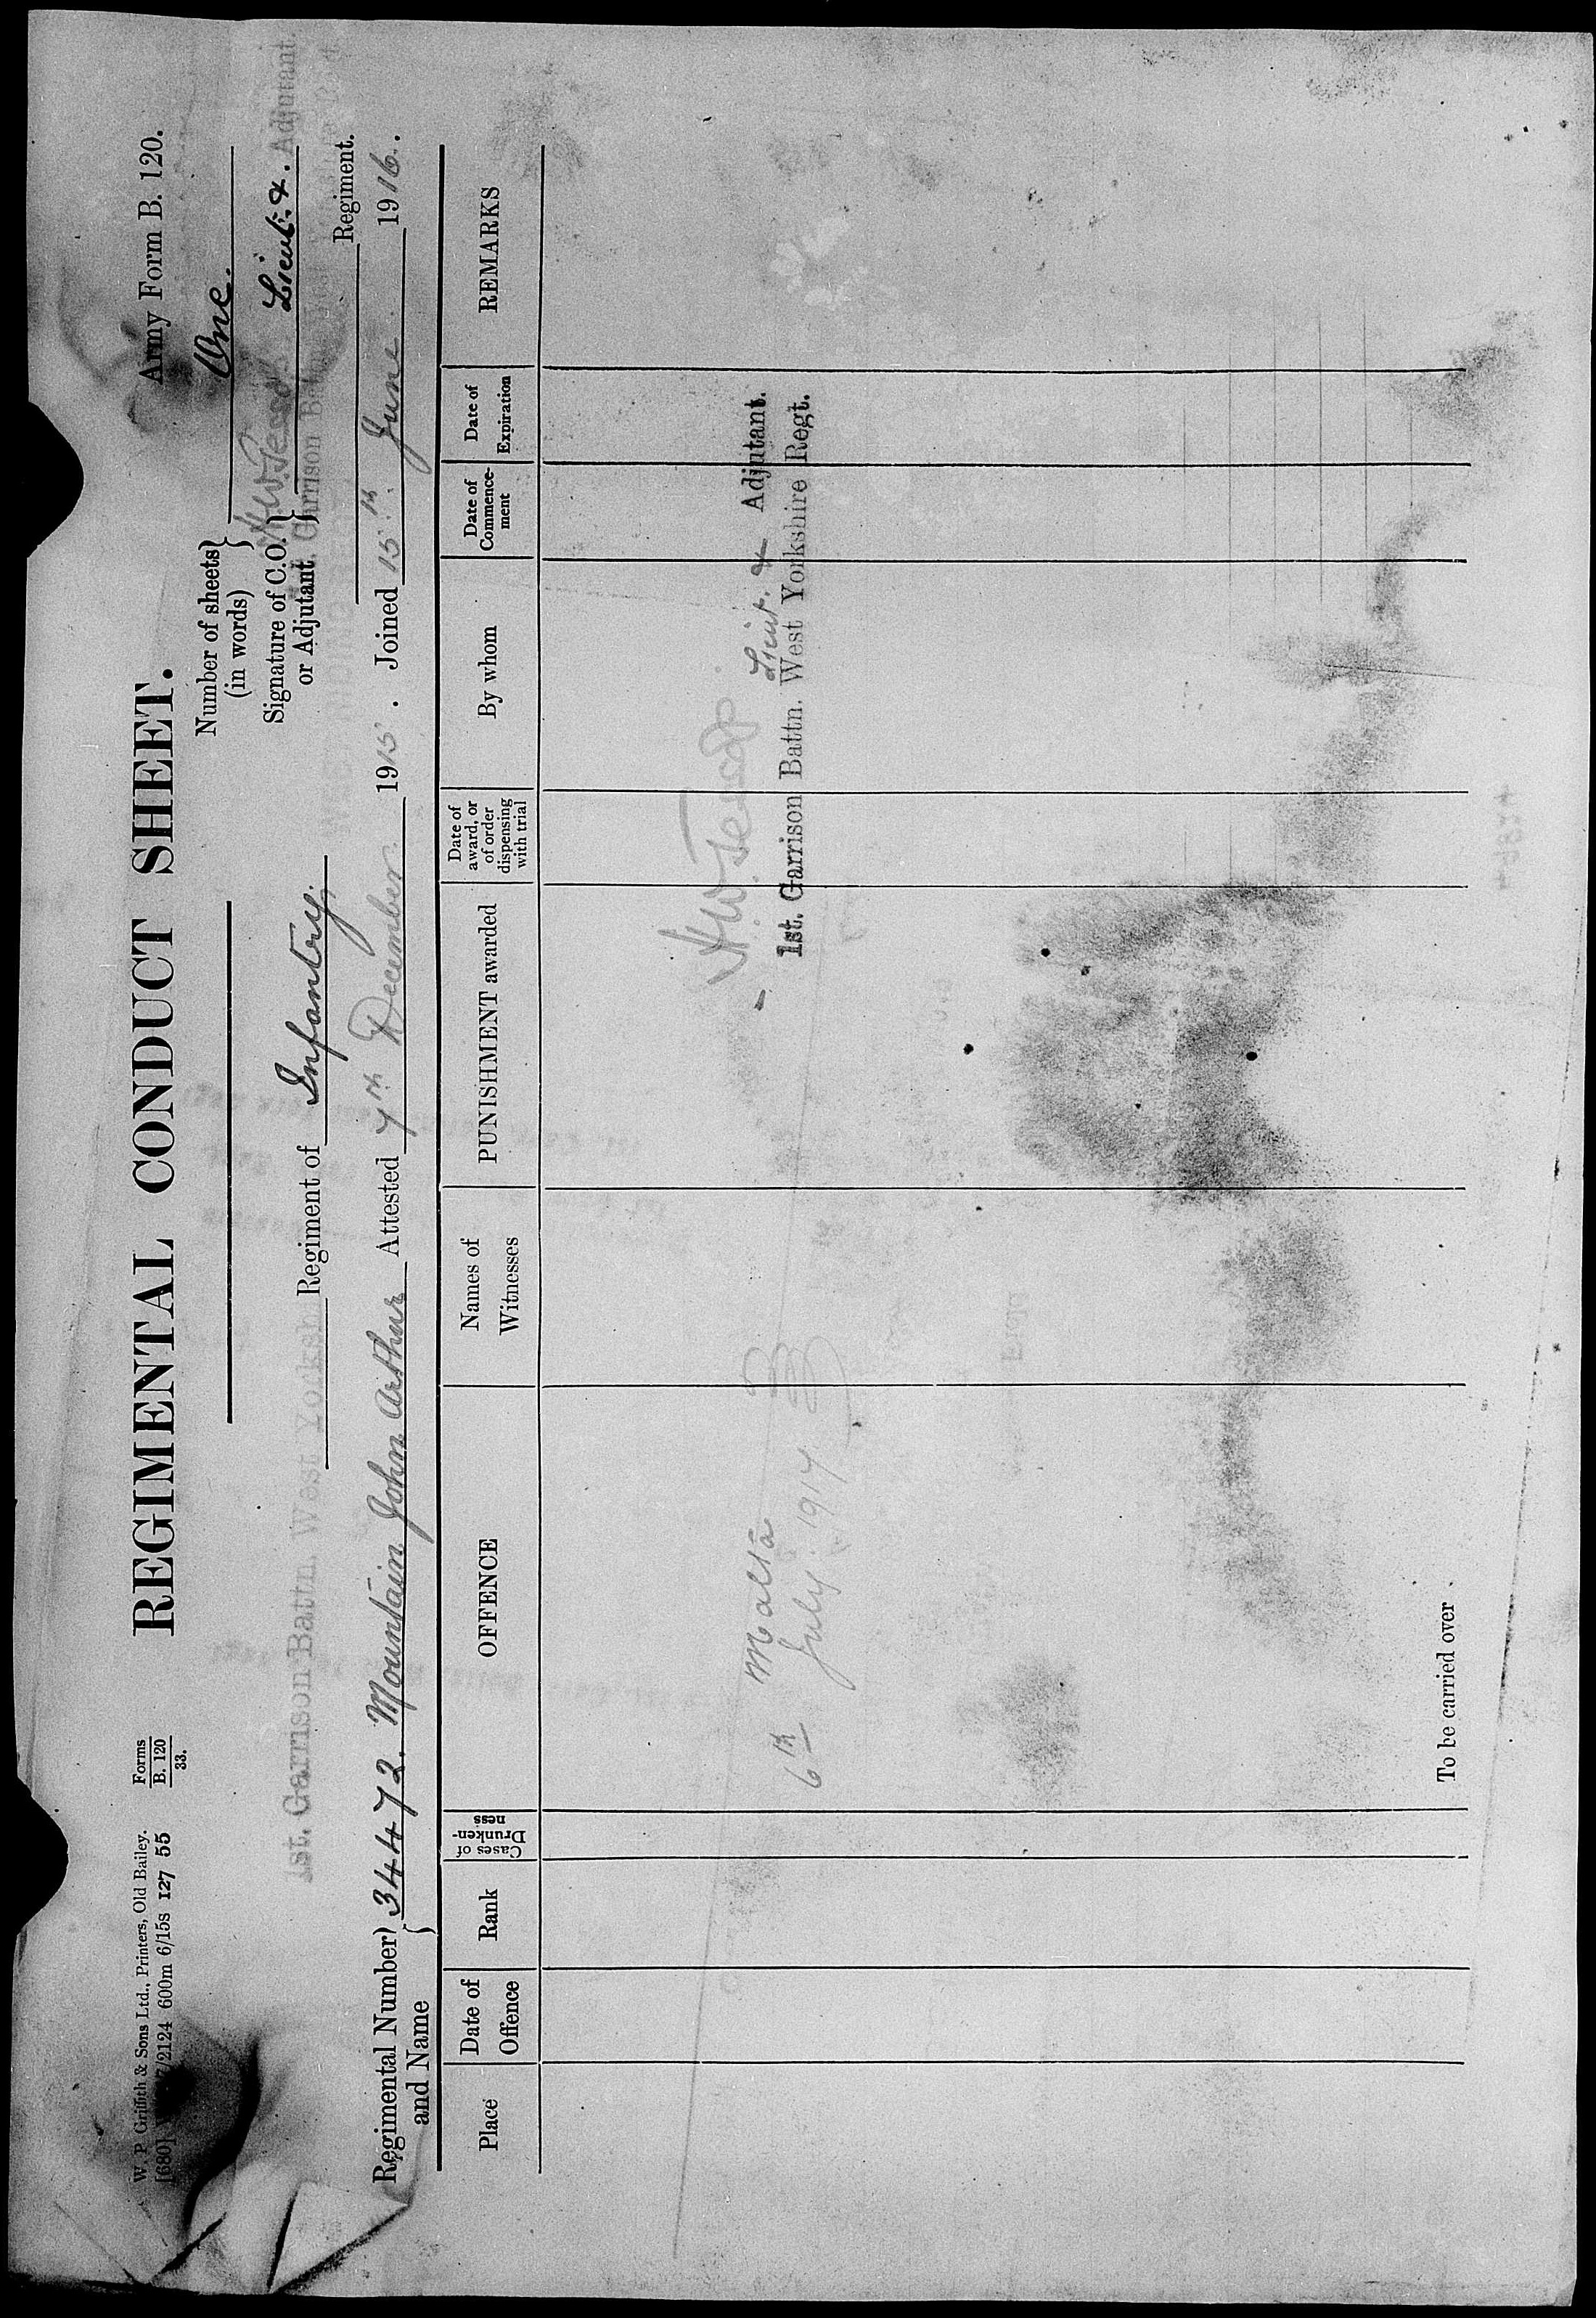 W. P. Griffith & Sons Ltd., Printers, Old Bailey.
[680] 7/2124 600m 6/15s 127 55
Forms
B. 120
33.
Army Form B. 120.
REGIMENTAL CONDUCT SHEET.
Number of sheets (in words) One.
Signature of C.O. or Adjutant Lieut. & Adjutant.
1st. Garrison Battn. West Yorkshire
Regiment of Infantry.
Regiment.
Regimental Number and Name 34472. Mountain John Arthur Attested 7th December 1915. Joined 15th June 1916.
Place
Date of Offence
Rank
Cases of Drunken-ness
OFFENCE
Names of Witnesses
PUNISHMENT awarded
Date of award, or of order dispensing with trial
By whom
Date of Commence-ment
Date of Expiration
REMARKS
Malta
6th July. 1917
Lieut. & Adjutant.
1st. Garrison Battn. West Yorkshire Regt.
To be carried over